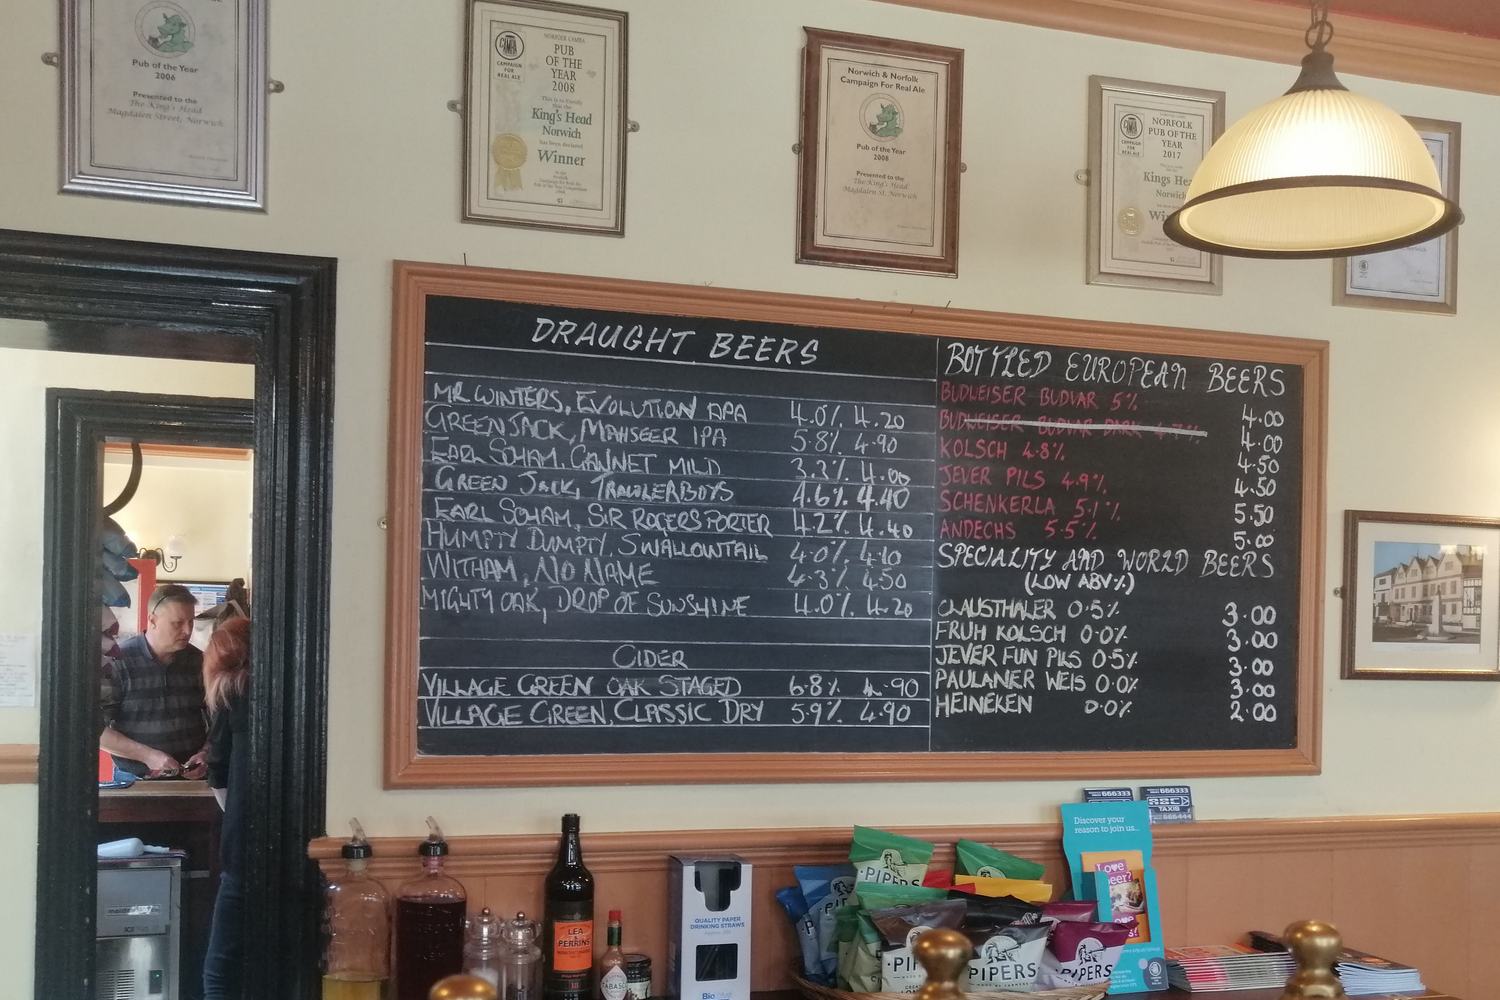 Pub of the Year
2006
Presented to the
The King's Head
Magdalen Street, Norwich
NORFOLK CAMRA
CAMRA
CAMPAIGN
FOR
REAL ALE
PUB
OF THE
YEAR
2008
This is to Certify
that the
King's Head
Norwich
has been declared
Winner
Norwich & Norfolk
Campaign For Real Ale
Pub of the Year
2008
Presented to the
The King's Head
Magdalen St. Norwich
CAMRA
CAMPAIGN
FOR
REAL ALE
NORFOLK
PUB OF THE
YEAR
2017
Kings Hea
Norwich
DRAUGHT BEERS
MR WINTERS, EVOLUTION APA 4.0% 4.20
GREENJACK, MAHSEER IPA 5.8% 4.90
EARL SOHAM, GANNET MILD 3.2% 4.00
GREEN JACK, TRAWLERBOYS 4.6% 4.40
EARL SOHAM, SIR ROGERS PORTER 4.2% 4.40
HUMPTY DUMPTY, SWALLOWTAIL 4.0% 4.10
WITHAM, NO NAME 4.3% 4.50
MIGHTY OAK, DROP OF SUNSHINE 4.0% 4.20
CIDER
VILLAGE GREEN OAK STAGED 6.8% 4.90
VILLAGE GREEN, CLASSIC DRY 5.9% 4.90
BOTTLED EUROPEAN BEERS
BUDWEISER BUDVAR 5% 4.00
BUDWEISER BUDVAR DARK 4.7% 4.00
KOLSCH 4.8% 4.50
JEVER PILS 4.9% 4.50
SCHENKERLA 5.1% 5.50
ANDECHS 5.5% 5.00
SPECIALITY AND WORLD BEERS
(LOW ABV%)
CLAUSTHALER 0.5% 3.00
FRUH KOLSCH 0.0% 3.00
JEVER FUN PILS 0.5% 3.00
PAULANER WEIS 0.0% 3.00
HEINEKEN 0.0% 2.00
666333
666333
ABC
TAXIS
666444
Discover your
reason to join us...
Love
beer?
LEA &
PERRINS
TABASCO
QUALITY PAPER
DRINKING STRAWS
PIPERS
PIPERS
PIPERS